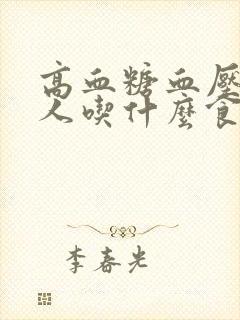 高血糖血壓
人喫什麼食
李春光